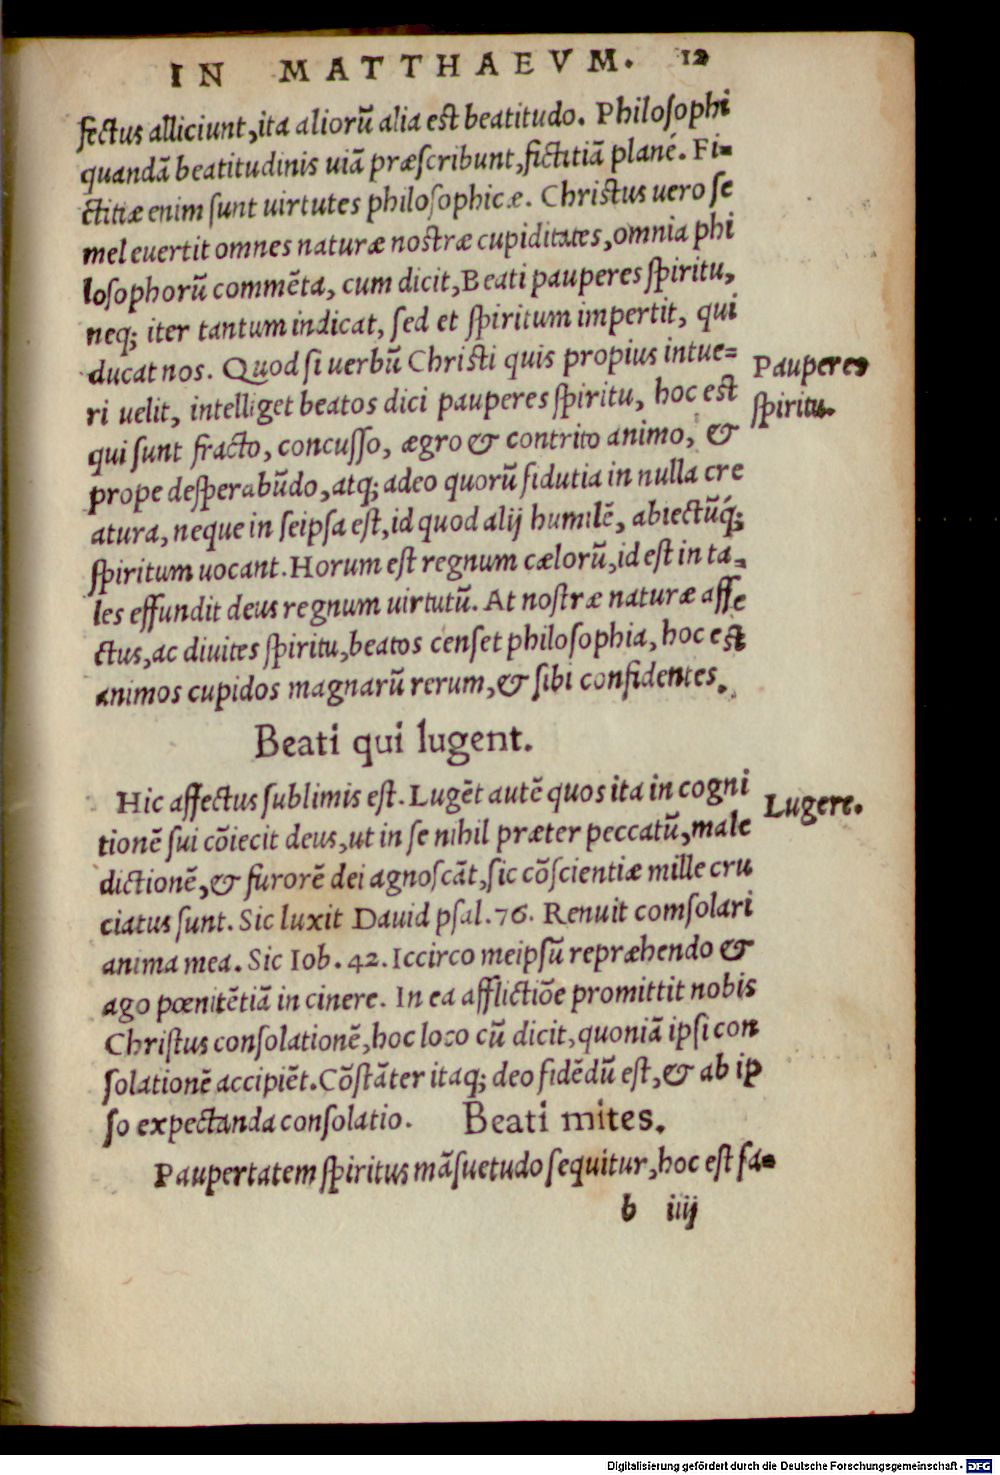 IN MATTHAEVM. 12
fectus alliciunt, ita aliorũ alia est beatitudo. Philosophi
quandã beatitudinis uiã præscribunt, fictitiã planè. Fi-
ctitiæ enim sunt uirtutes philosophicæ. Christus uero se
mel euertit omnes naturæ nostræ cupiditates, omnia phi
losophorũ commẽta, cum dicit, Beati pauperes spiritu,
neq; iter tantum indicat, sed et spiritum impertit, qui
ducat nos. Quod si uerbũ Christi quis propius intue-
ri uelit, intelliget beatos dici pauperes spiritu, hoc est
Pauperes
spiritu.
qui sunt fracto, concusso, ægro & contrito animo, &
prope desperabũdo, atq; adeo quorũ fidutia in nulla cre
atura, neque in seipsa est, id quod alij humilẽ, abiectũq́;
spiritum uocant. Horum est regnum cælorũ, id est in ta-
les effundit deus regnum uirtutũ. At nostræ naturæ affe
ctus, ac diuites spiritu, beatos censet philosophia, hoc est
animos cupidos magnarũ rerum, & sibi confidentes.
Beati qui lugent.
Hic affectus sublimis est. Lugẽt autẽ quos ita in cogni
Lugere.
tionẽ sui cõiecit deus, ut in se nihil præter peccatũ, male
dictionẽ, & furorẽ dei agnoscãt, sic cõscientiæ mille cru
ciatus sunt. Sic luxit Dauid psal. 76. Renuit comsolari
anima mea. Sic Iob. 42. Iccirco meipsũ repræhendo &
ago pœnitẽtiã in cinere. In ea afflictiõe promittit nobis
Christus consolationẽ, hoc loco cũ dicit, quoniã ipsi con
solationẽ accipiẽt. Cõstãter itaq; deo fidẽdũ est, & ab ip
so expectanda consolatio. Beati mites.
Paupertatem spiritus mãsuetudo sequitur, hoc est fa-
b iiij
Digitalisierung gefördert durch die Deutsche Forschungsgemeinschaft - DFG